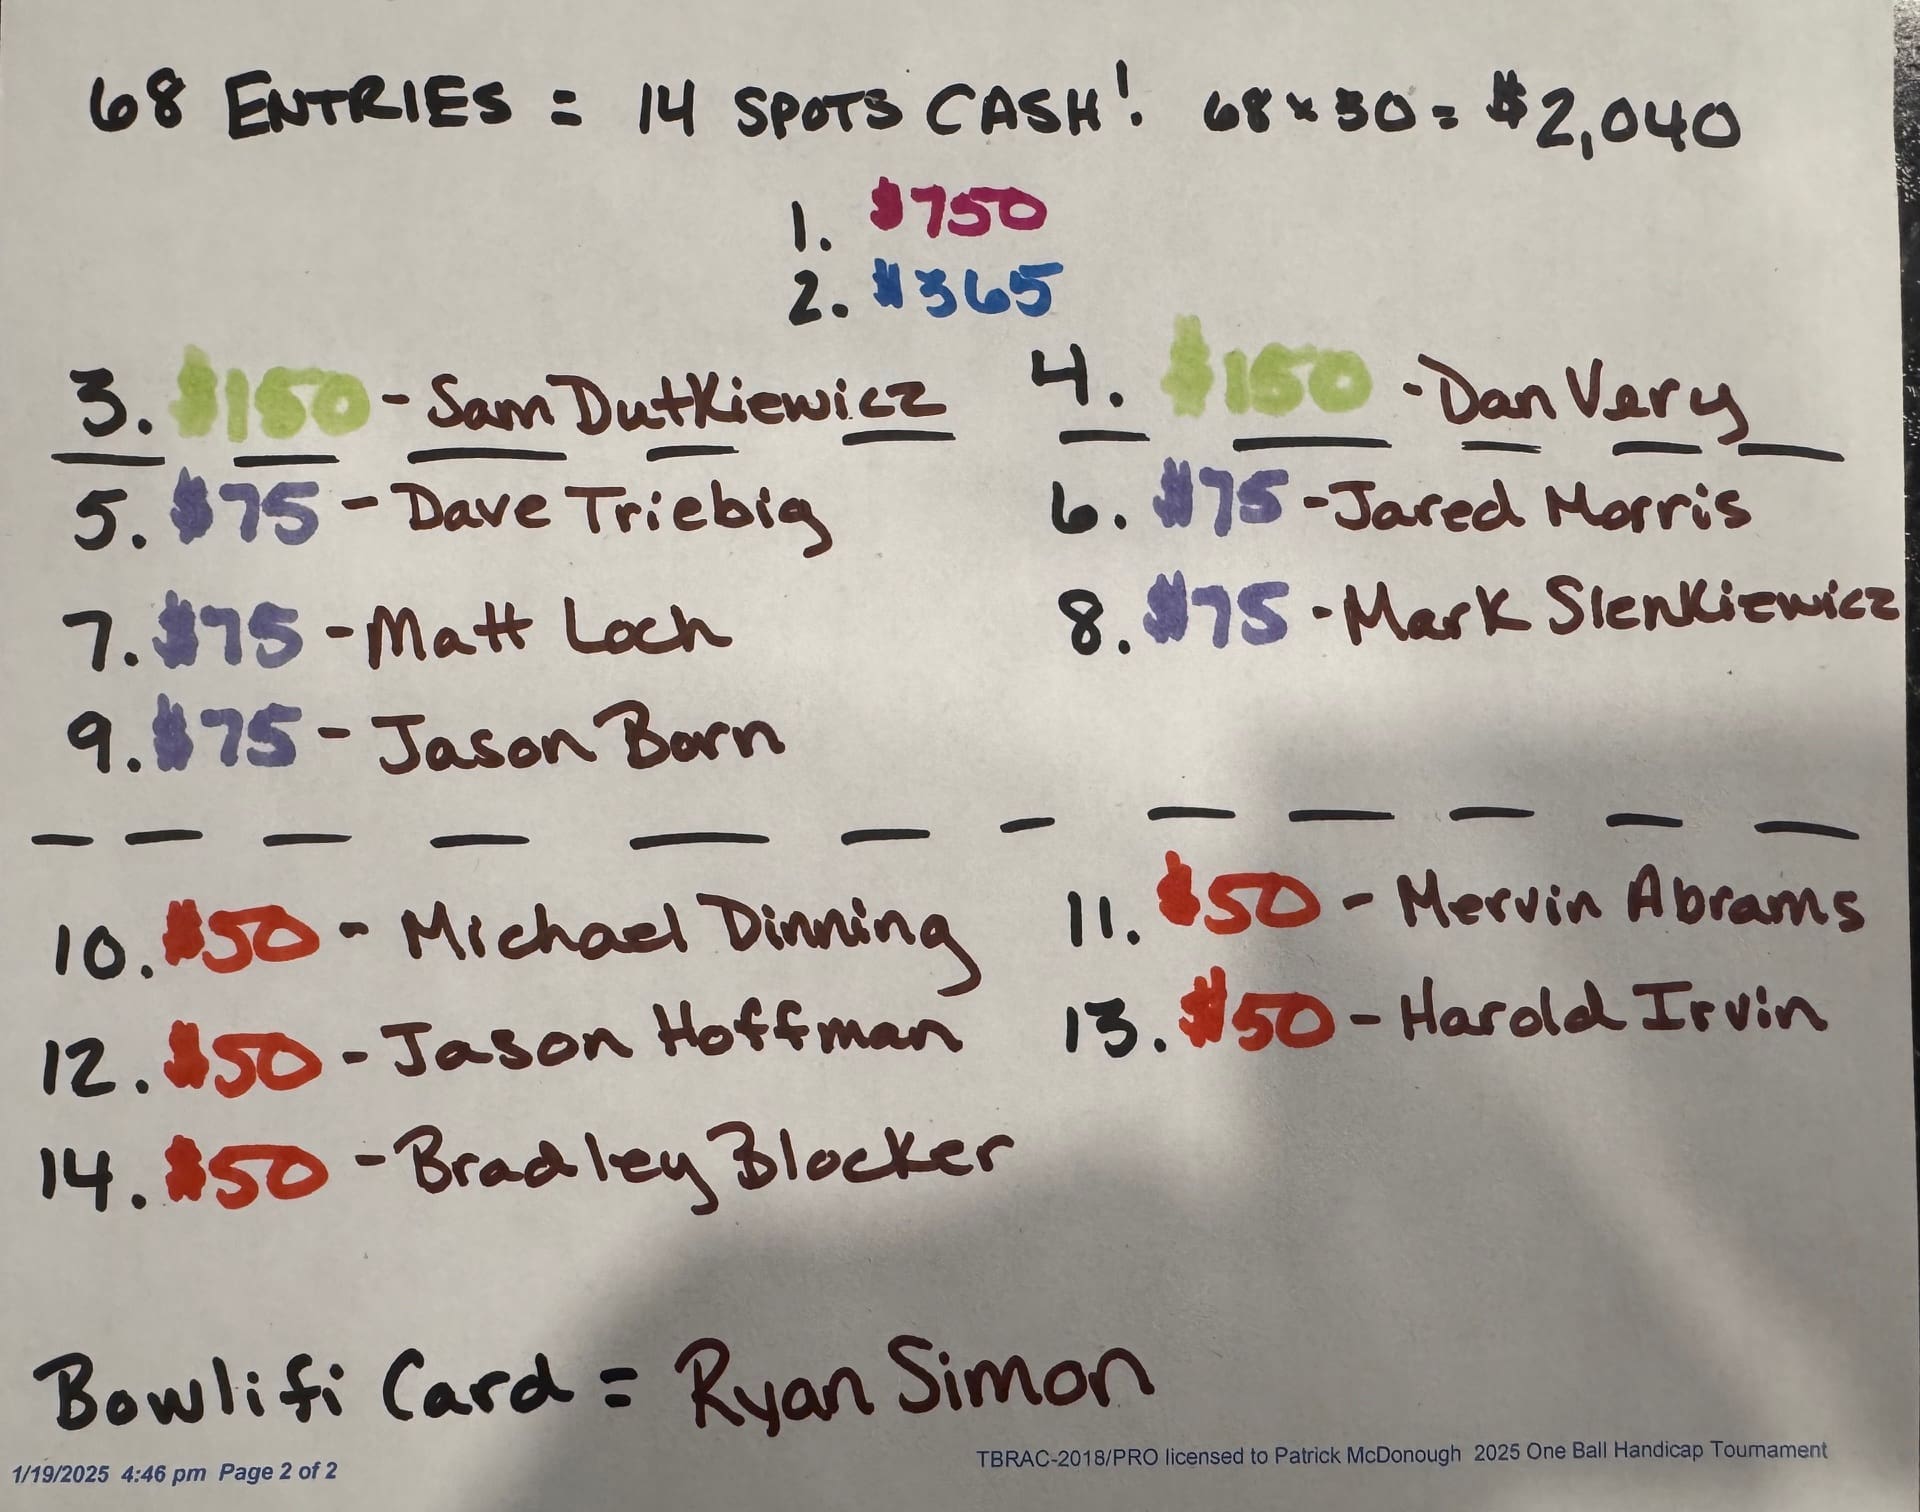 68 ENTRIES = 14 SPOTS CASH! 68 x 30 = $2,040
1. $750
2. $365
3. $150 - Sam Dutkiewicz
4. $150 - Dan Very
5. $75 - Dave Triebig
6. $75 - Jared Morris
7. $75 - Matt Loch
8. $75 - Mark Slenkiewicz
9. $75 - Jason Born
10. $50 - Michael Dinning
11. $50 - Mervin Abrams
12. $50 - Jason Hoffman
13. $50 - Harold Irvin
14. $50 - Bradley Blocker
Bowlifi Card = Ryan Simon
1/19/2025 4:46 pm Page 2 of 2
TBRAC-2018/PRO licensed to Patrick McDonough 2025 One Ball Handicap Tournament